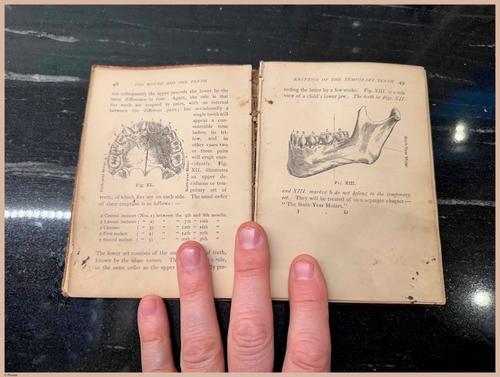 48 THE MOUTH AND THE TEETH
not infrequently the upper precede the lower by the
same difference in time. Again, the rule is that
the teeth are erupted by pairs, with an interval
between the different pairs; but occasionally a
single tooth will
appear a con-
siderable time
before its fel-
low, and in
other cases two
or three pairs
will erupt coin-
cidently. Fig.
XII. illustrates
an upper de-
ciduous or tem-
porary set of
Sixth-year Molar.
Fig. XII.
teeth, of which five are on each side. The usual order
of their eruption is as follows:
2 Central incisors (Nos. 1) between the 5th and 8th months.
2 Lateral incisors ( " 2) " 7th " 10th "
2 Canines ( " 3) " 14th " 20th "
2 First molars ( " 4) " "
2 Second molars ( " 5) " 36th "
The lower set consists of the teeth,
known by the same names. Th a rule,
in the same order as the upper pre-
ERUPTION OF THE TEMPORARY TEETH 49
ceding the latter by a few weeks. Fig. XIII. is a side
view of a child's lower jaw. The teeth in Figs. XII.
Sixth-Year Molar.
Fig. XIII.
and XIII. marked b do not belong to the temporary
set. They will be treated of in a separate chapter—
"The Sixth-Year Molars."